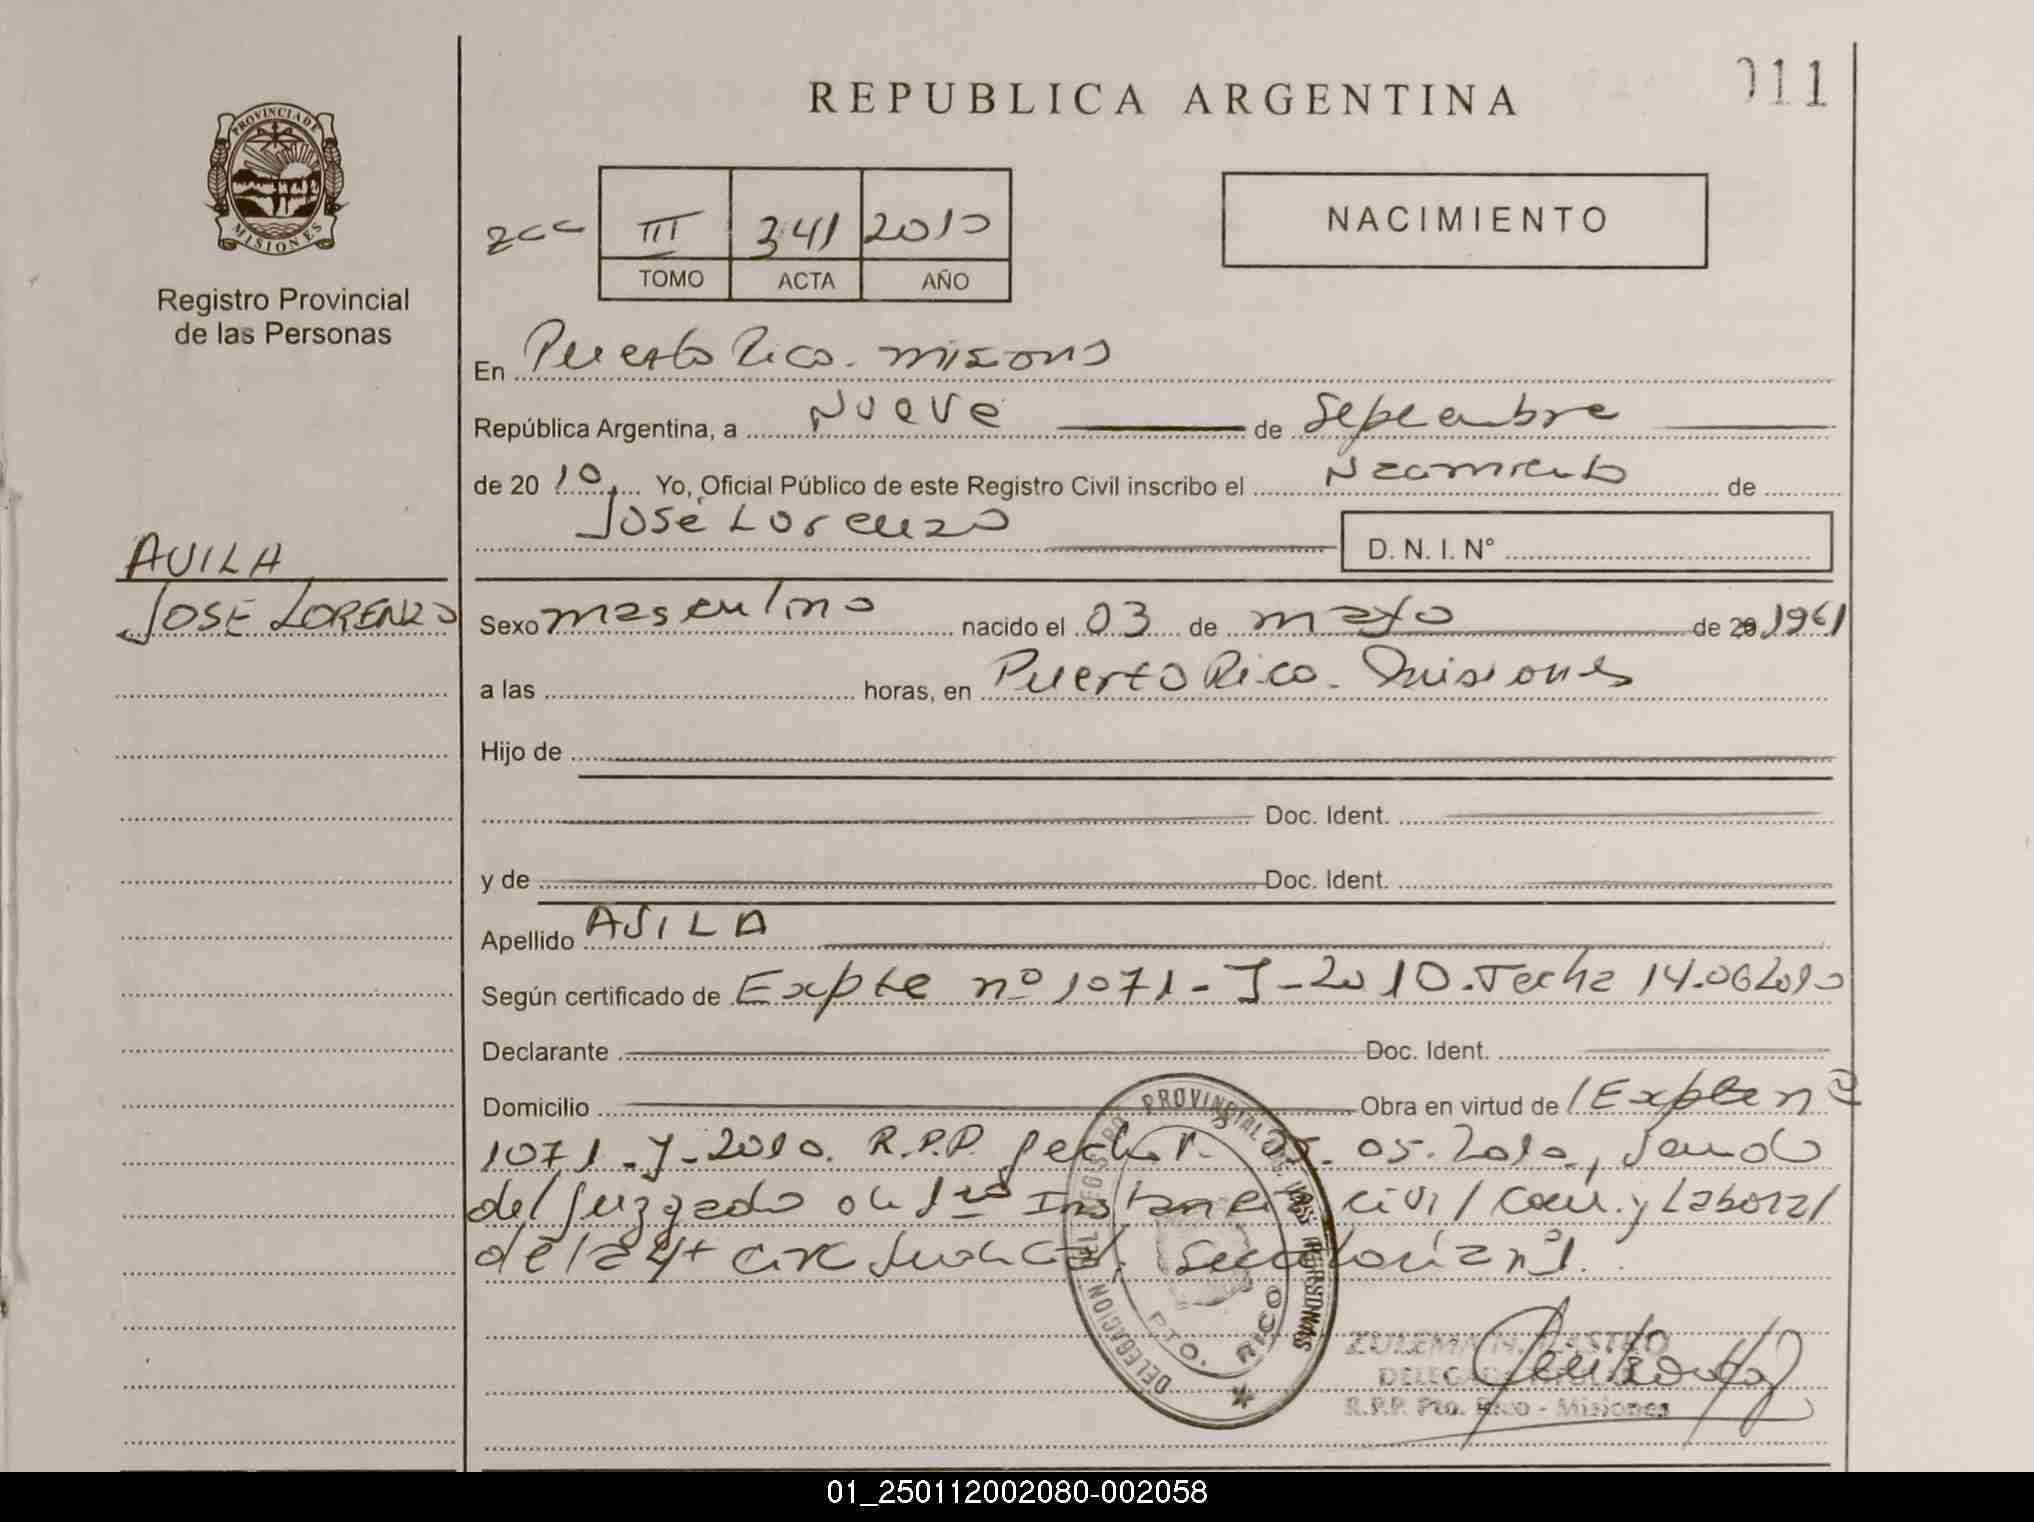 REPUBLICA ARGENTINA
011
PROVINCIA DE
MISIONES
Registro Provincial
de las Personas
III 341 2010
TOMO ACTA AÑO
NACIMIENTO
En Puerto Rico. misiones
República Argentina, a Nueve de Septiembre
de 20 10 Yo, Oficial Público de este Registro Civil inscribo el Nacimiento de
José Lorenzo
D. N. I. N°
AVILA
JOSE LORENZO
Sexo masculino nacido el 03 de mayo de 20 1961
a las horas, en Puerto Rico. Misiones
Hijo de
Doc. Ident.
y de Doc. Ident.
Apellido AVILA
Según certificado de Expte nº 1071-J-2010. Fecha 14.06.2010
Declarante Doc. Ident.
Domicilio Obra en virtud de Expte nº
1071-J-2010. R.P.P. 05.2010,
del Juzgado de 1ra Instancia Civil Com. y Laboral
de la 4ta Circ Judicial, Secretoría nº1.
DELEGACION DEL REGISTRO PROVINCIAL DE LAS PERSONAS
PTO. RICO
ZULEMA N. MASTRO
R.P.P. Pto. Rico - Misiones
01_250112002080-002058